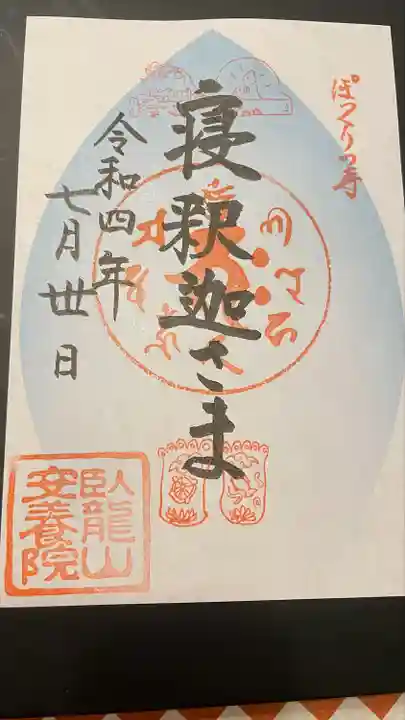 ぽっくりっ寿
寝釈迦さま
令和四年
七月丗日
臥龍山
安養院